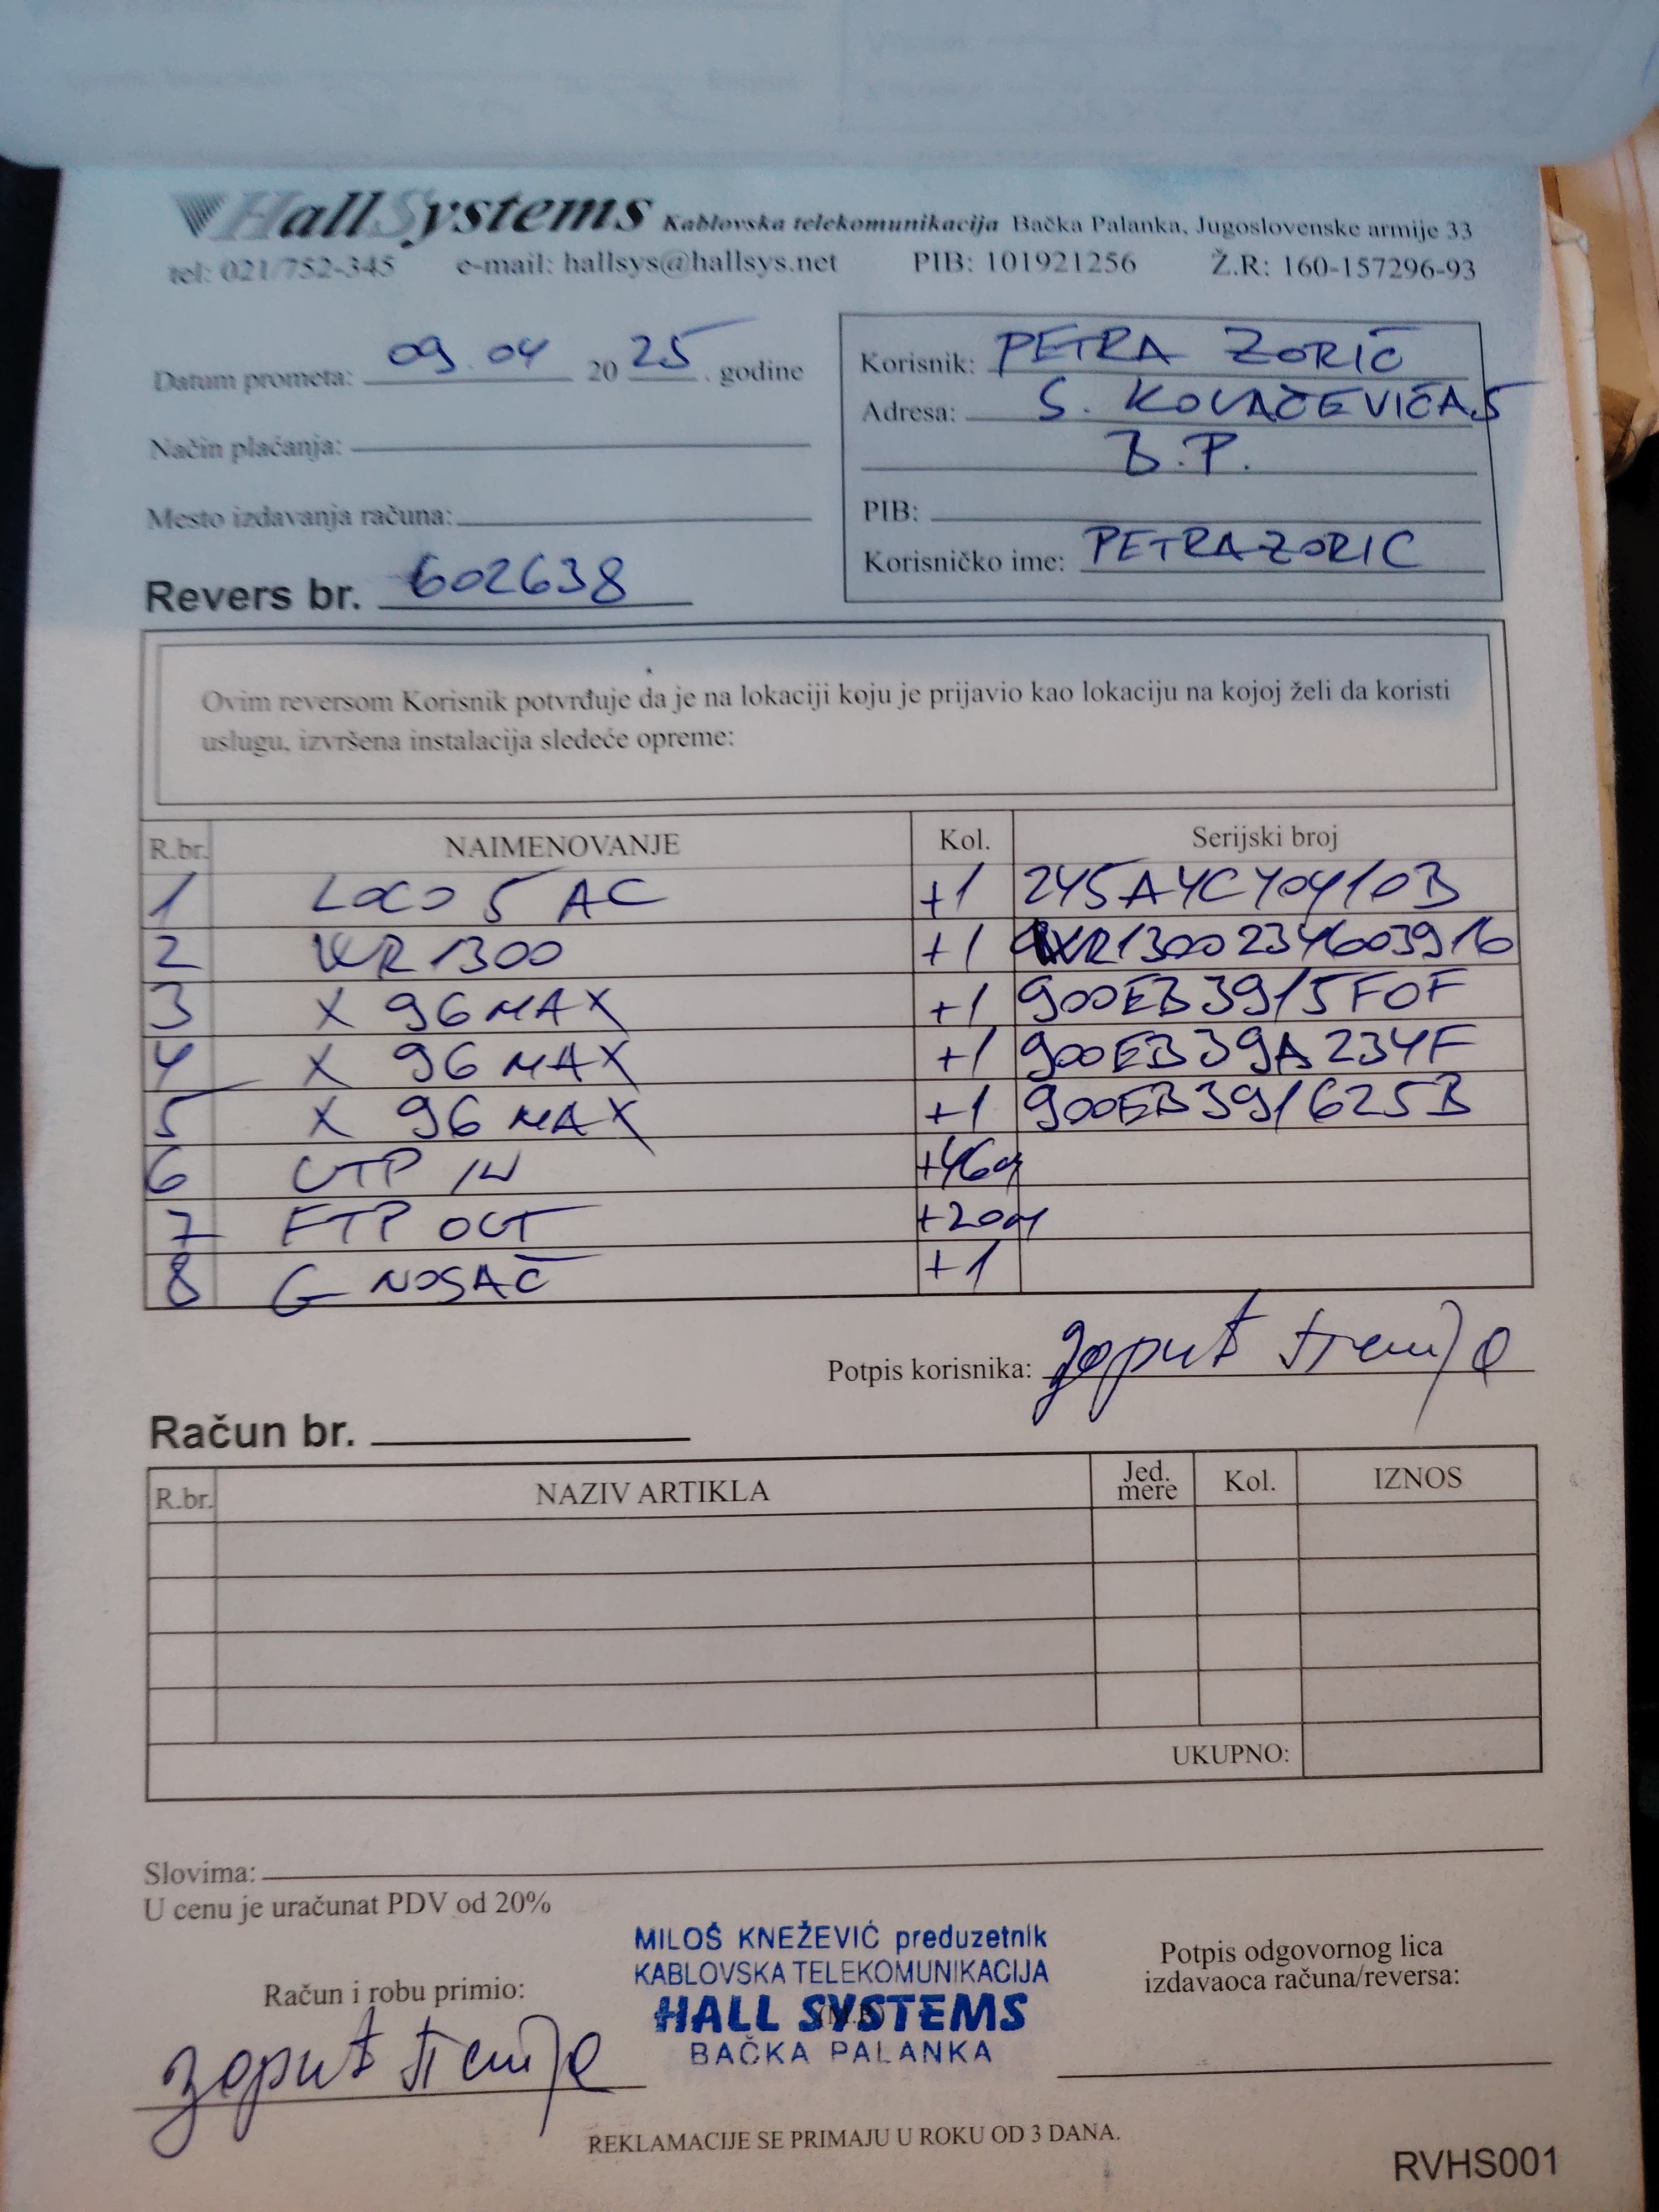 HallSystems Kablovska telekomunikacija Bačka Palanka, Jugoslovenske armije 33
tel: 021/752-345 e-mail: hallsys@hallsys.net PIB: 101921256 Ž.R: 160-157296-93
Datum prometa: 09.04 2025. godine
Način plaćanja:
Mesto izdavanja računa:
Revers br. 602638
Korisnik: PETRA ZORIĆ
Adresa: S. KOVAČEVIĆA 5
B.P.
PIB:
Korisničko ime: PETRAZORIC
Ovim reversom Korisnik potvrđuje da je na lokaciji koju je prijavio kao lokaciju na kojoj želi da koristi
uslugu, izvršena instalacija sledeće opreme:
R.br. NAIMENOVANJE Kol. Serijski broj
1 LOCO 5 AC +1 245A4C40410B
2 WR 1300 +1 WR1300234603916
3 X 96 MAX +1 900EB3915F0F
4 X 96 MAX +1 900EB39A234F
5 X 96 MAX +1 900EB391625B
6 UTP IN +46m
7 FTP OUT +20m
8 G NOSAČ +1
Potpis korisnika:
Račun br.
R.br. NAZIV ARTIKLA Jed. mere Kol. IZNOS
UKUPNO:
Slovima:
U cenu je uračunat PDV od 20%
Račun i robu primio:
MILOŠ KNEŽEVIĆ preduzetnik
KABLOVSKA TELEKOMUNIKACIJA
HALL SYSTEMS
BAČKA PALANKA
Potpis odgovornog lica
izdavaoca računa/reversa:
REKLAMACIJE SE PRIMAJU U ROKU OD 3 DANA.
RVHS001